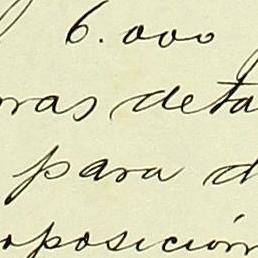 6.000
ras deta
para d
oposición